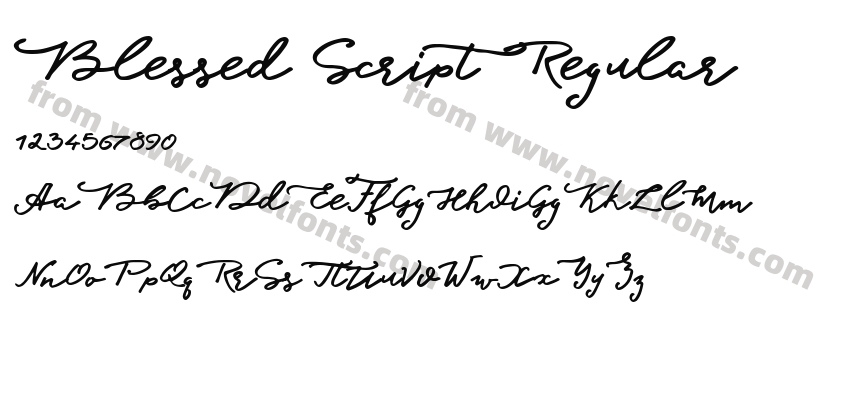 Blessed Script Regular
1234567890
Aa Bb Cc Dd Ee Ff Gg Hh Ii Gg Kk Ll Mm
Nn Oo Pp Qq Rr Ss Tt Uu Vv Ww Xx Yy Zz
from www.novelfonts.com
from www.novelfonts.com